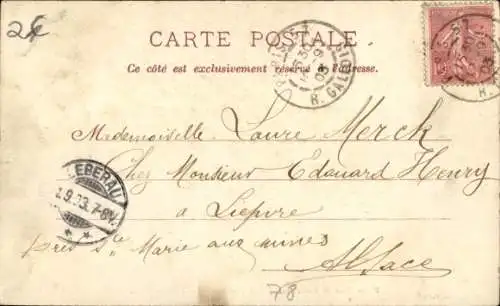 2€
CARTE POSTALE.
Ce côté est exclusivement réservé à l'adresse.
R. GALLI
Mademoiselle Laure Merck
Chez Monsieur Edouard Henry
à Liepvre
près Ste Marie aux mines
Alsace
LEBERAU
1.9.03.7-8V.
78